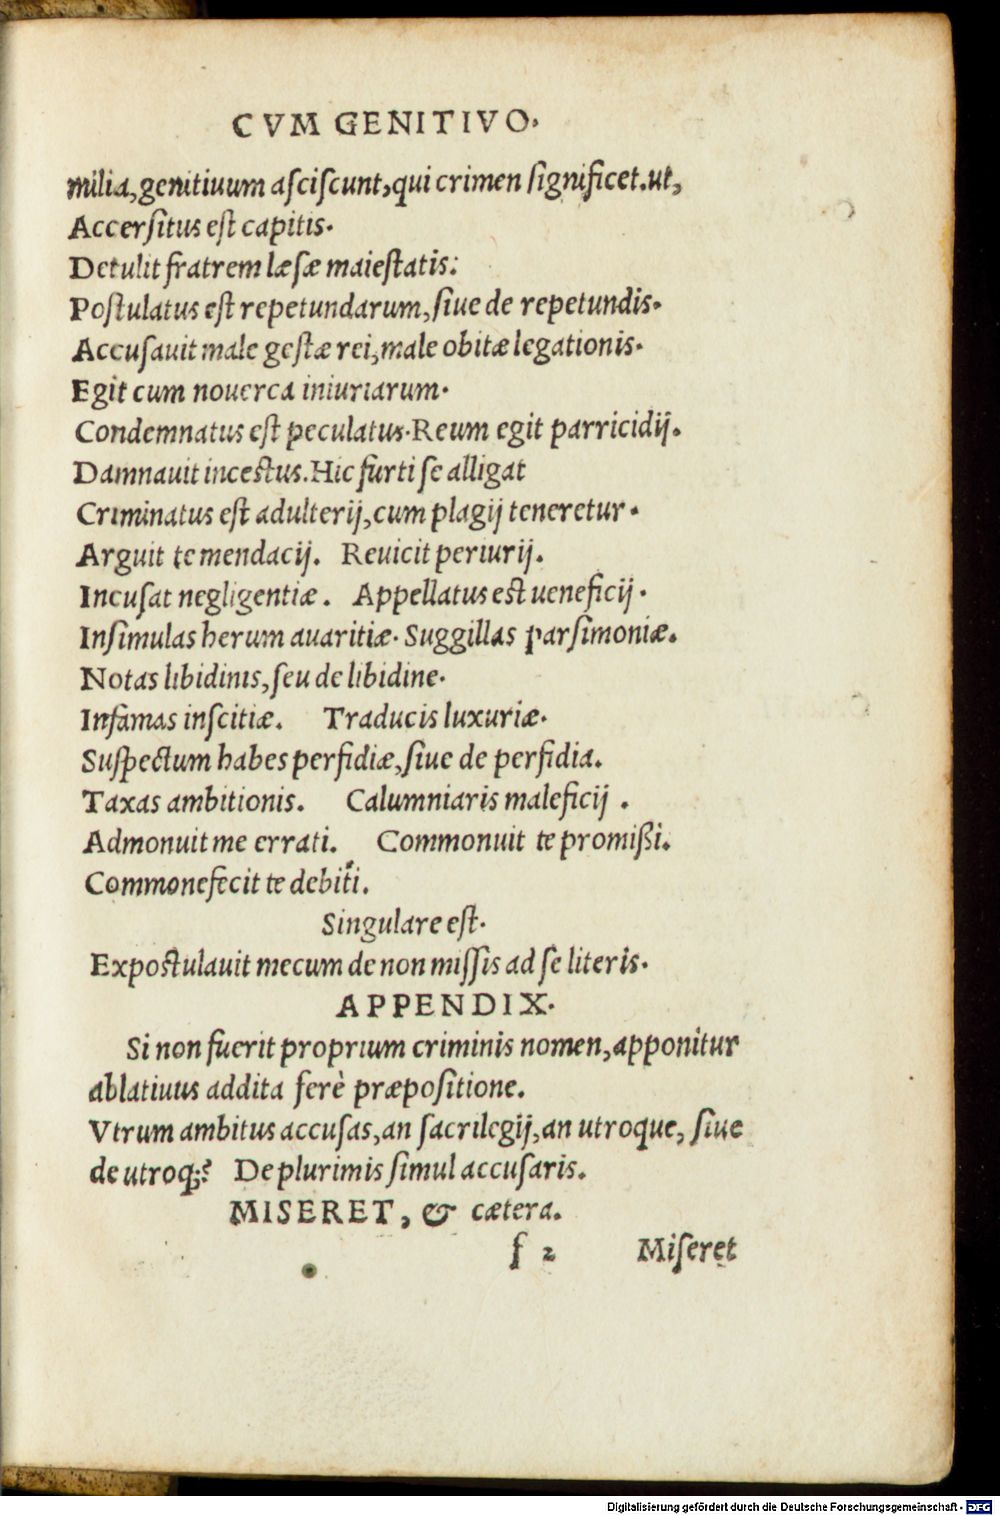 CVM GENITIVO.
milia, genitiuum asciscunt, qui crimen significet. ut,
Accersitus est capitis.
Detulit fratrem læsæ maiestatis:
Postulatus est repetundarum, siue de repetundis.
Accusauit male gestæ rei, male obitæ legationis.
Egit cum nouerca iniuriarum.
Condemnatus est peculatus. Reum egit parricidij.
Damnauit incestus. Hic furti se alligat
Criminatus est adulterij, cum plagij teneretur.
Arguit te mendacij. Reuicit periurij.
Incusat negligentiæ. Appellatus est ueneficij.
Insimulas herum auaritiæ. Suggillas parsimoniæ.
Notas libidinis, seu de libidine.
Infamas inscitiæ. Traducis luxuriæ.
Suspectum habes perfidiæ, siue de perfidia.
Taxas ambitionis. Calumniaris maleficij.
Admonuit me errati. Commonuit te promißi.
Commonefecit te debiti.
Singulare est.
Expostulauit mecum de non missis ad se literis.
APPENDIX.
Si non fuerit proprium criminis nomen, apponitur
ablatiuus addita ferè præpositione.
Vtrum ambitus accusas, an sacrilegij, an utroque, siue
de utroq;? De plurimis simul accusaris.
MISERET, & cætera.
f 2 Miseret
Digitalisierung gefördert durch die Deutsche Forschungsgemeinschaft - DFG